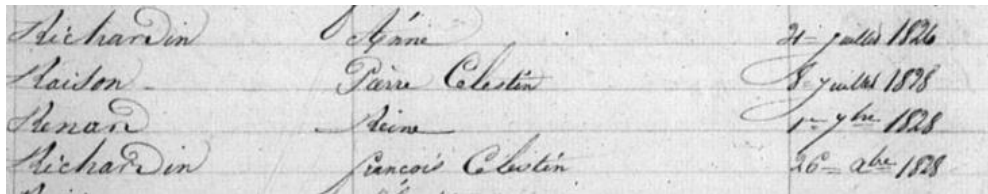 Richardin Anne 21 juillet 1826
Raison Pierre Celestin 8 juillet 1828
Renan Reine 1er 7bre 1828
Richardin françois Celestin 26 abre 1828